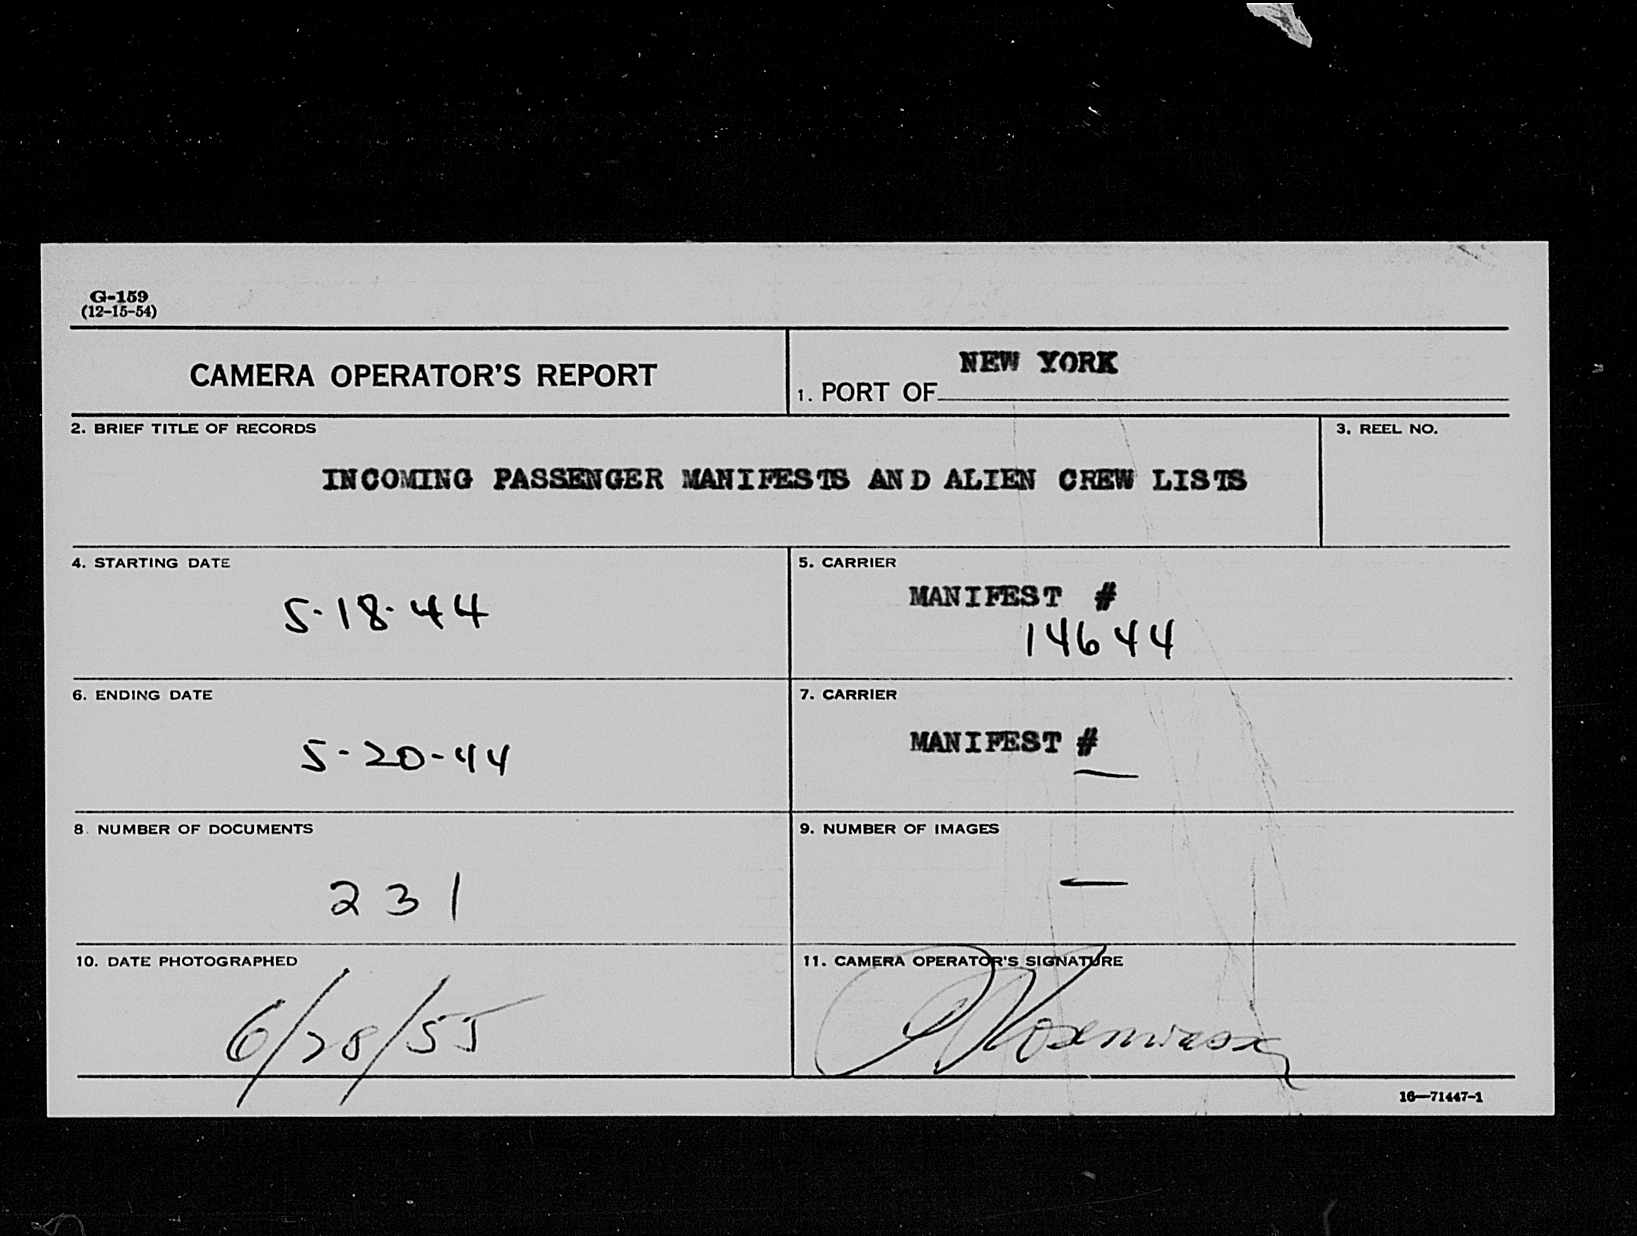 G-159
(12-15-54)
CAMERA OPERATOR'S REPORT
NEW YORK
1. PORT OF
2. BRIEF TITLE OF RECORDS
INCOMING PASSENGER MANIFESTS AND ALIEN CREW LISTS
3. REEL NO.
4. STARTING DATE
5-18-44
5. CARRIER
MANIFEST #
14644
6. ENDING DATE
5-20-44
7. CARRIER
MANIFEST #
—
8. NUMBER OF DOCUMENTS
231
9. NUMBER OF IMAGES
—
10. DATE PHOTOGRAPHED
6/28/55
11. CAMERA OPERATOR'S SIGNATURE
16—71447-1